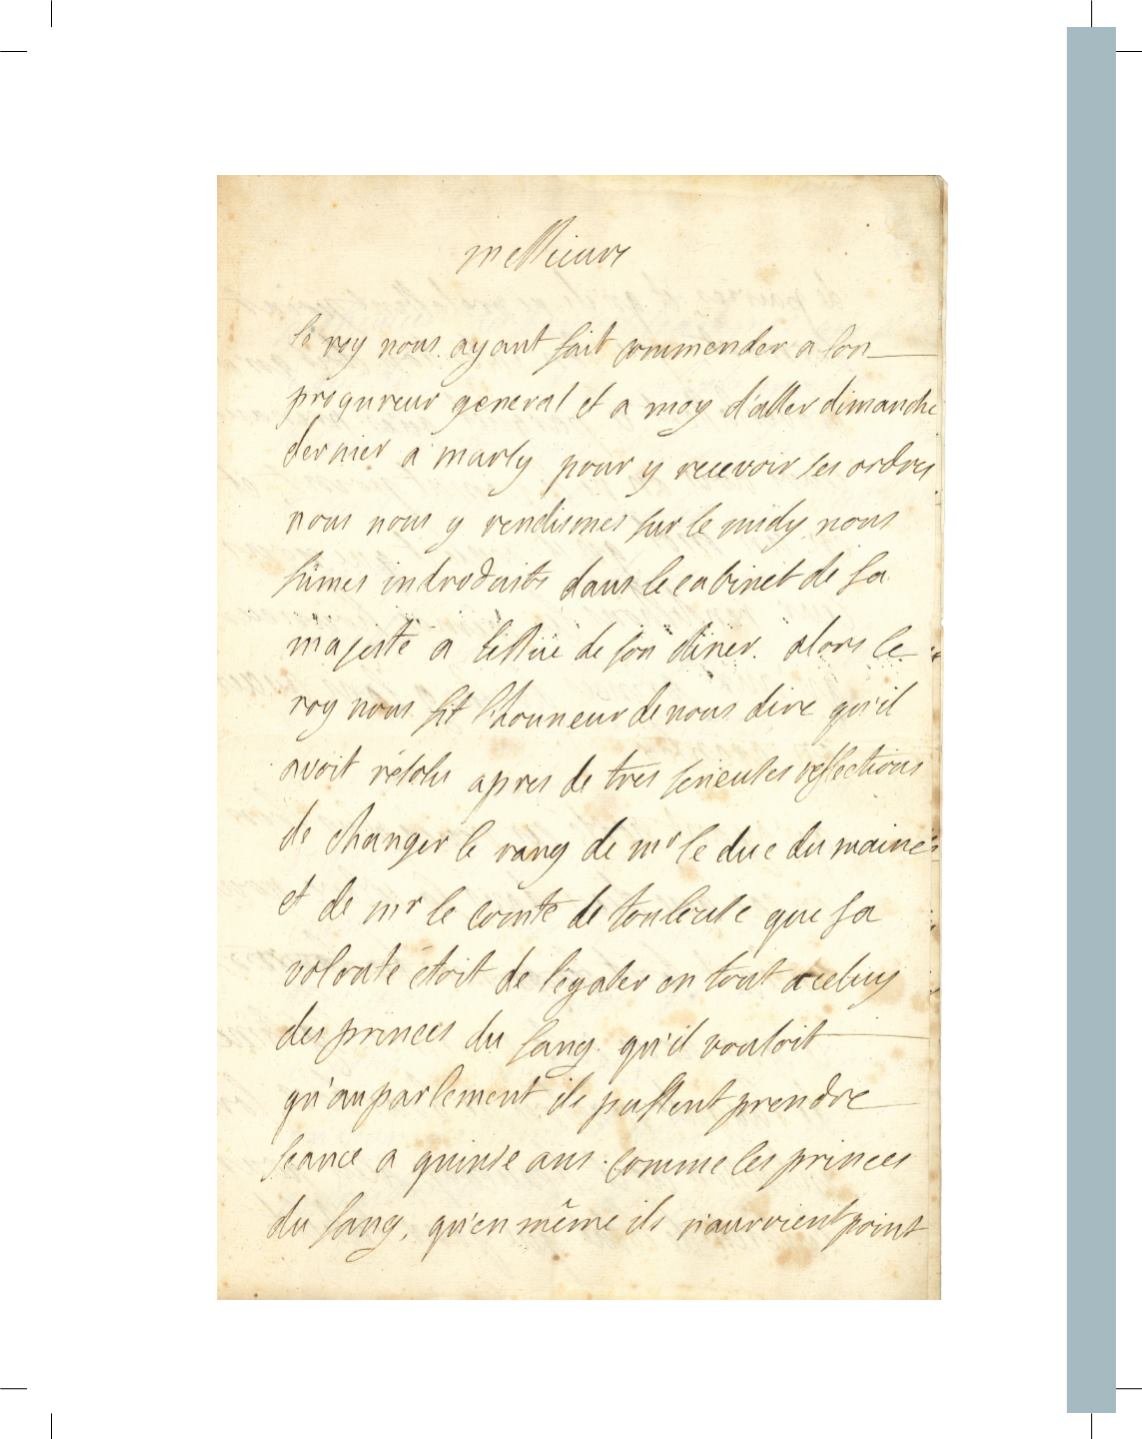 messieurs
le roy nous ayant fait commender a son
procqureur general et a moy d'aller dimanche
dernier a marly pour y recevoir ses ordres
nous nous y rendismes sur le midy nous
fûmes introduits dans le cabinet de sa
majesté a lissüe de son diner. alors le
roy nous fit l'honneur de nous dire qu'il
avoit résolu apres de tres serieuses reflections
de changer le rang de mr le duc du maine
et de mr le comte de toulouse que sa
volonté étoit de l'égaler en tout a celuy
des princes du sang qu'il vouloit
qu'au parlement ils pussent prendre
seance a quinse ans comme les princes
du sang, qu'en même ils n'auroient point